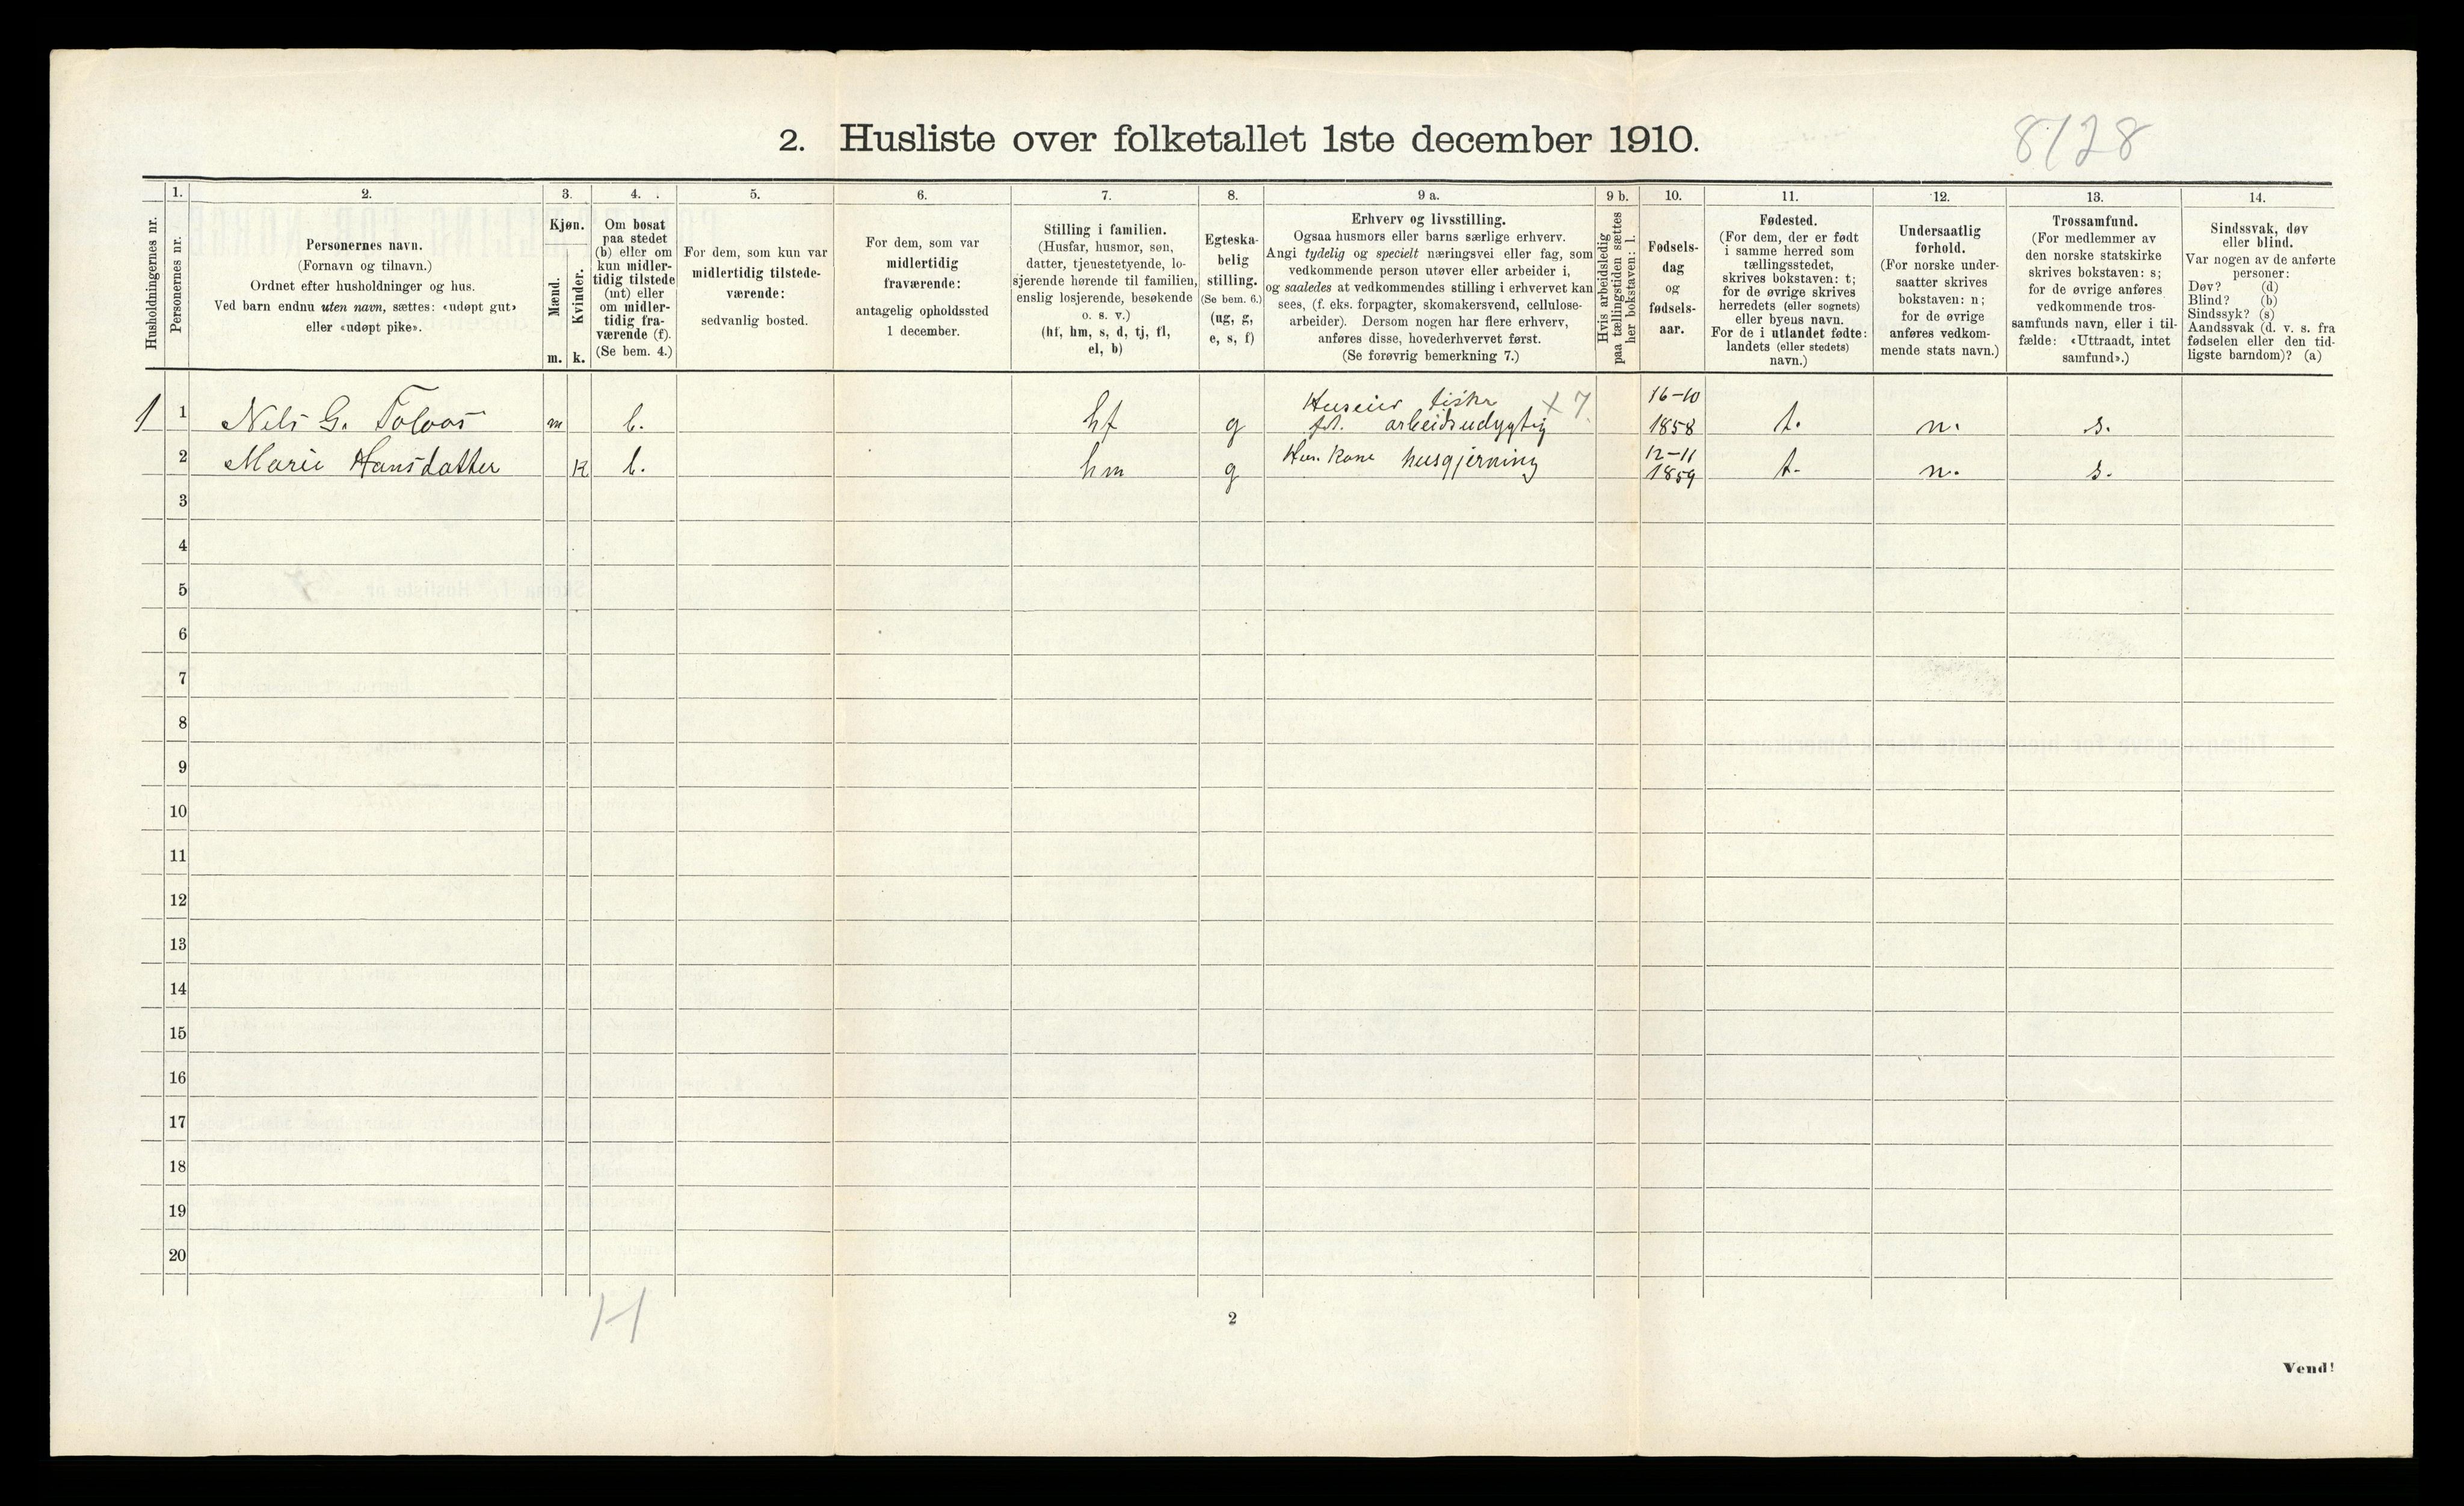 2. Husliste over folketallet 1ste december 1910.
8/28
Husholdningernes nr.
1.
Personernes nr.
2.
Personernes navn.
(Fornavn og tilnavn.)
Ordnet efter husholdninger og hus.
Ved barn endnu uten navn, sættes: «udøpt gut»
eller «udøpt pike».
3.
Kjøn.
Mænd.
m.
Kvinder.
k.
4.
Om bosat
paa stedet
(b) eller om
kun midler-
tidig tilstede
(mt) eller
om midler-
tidig fra-
værende (f).
(Se bem. 4.)
5.
For dem, som kun var
midlertidig tilstede-
værende:
sedvanlig bosted.
6.
For dem, som var
midlertidig
fraværende:
antagelig opholdssted
1 december.
7.
Stilling i familien.
(Husfar, husmor, søn,
datter, tjenestetyende, lo-
sjerende hørende til familien,
enslig losjerende, besøkende
o. s. v.)
(hf, hm, s, d, tj, fl,
el, b)
8.
Egteska-
belig
stilling.
(Se bem. 6.)
(ug, g,
e, s, f)
9 a.
Erhverv og livsstilling.
Ogsaa husmors eller barns særlige erhverv.
Angi tydelig og specielt næringsvei eller fag, som
vedkommende person utøver eller arbeider i,
og saaledes at vedkommendes stilling i erhvervet kan
sees, (f. eks. forpagter, skomakersvend, cellulose-
arbeider). Dersom nogen har flere erhverv,
anføres disse, hovederhvervet først.
(Se forøvrig bemerkning 7.)
9 b.
Hvis arbeidsledig
paa tællingstiden sættes
her bokstaven: l.
10.
Fødsels-
dag
og
fødsels-
aar.
11.
Fødested.
(For dem, der er født
i samme herred som
tællingsstedet,
skrives bokstaven: t;
for de øvrige skrives
herredets (eller sognets)
eller byens navn.
For de i utlandet fødte:
landets (eller stedets)
navn.)
12.
Undersaatlig
forhold.
(For norske under-
saatter skrives
bokstaven: n;
for de øvrige
anføres vedkom-
mende stats navn.)
13.
Trossamfund.
(For medlemmer av
den norske statskirke
skrives bokstaven: s;
for de øvrige anføres
vedkommende tros-
samfunds navn, eller i til-
fælde: «Uttraadt, intet
samfund».)
14.
Sindssvak, døv
eller blind.
Var nogen av de anførte
personer:
Døv? (d)
Blind? (b)
Sindssyk? (s)
Aandssvak (d. v. s. fra
fødselen eller den tid-
ligste barndom)? (a)
Huseier fisker x 7. 16-10
1 1 Nels G. m b. hf g arbeidsudygtig 1858 t. n. s.
12-11
2 Marie Hansdatter k b. hm g kone husgjerning 1859 t. n. s.
3
4
5
6
7
8
9
10
11
12
13
14
15
16
17
18
19
20
H
2
Vend!